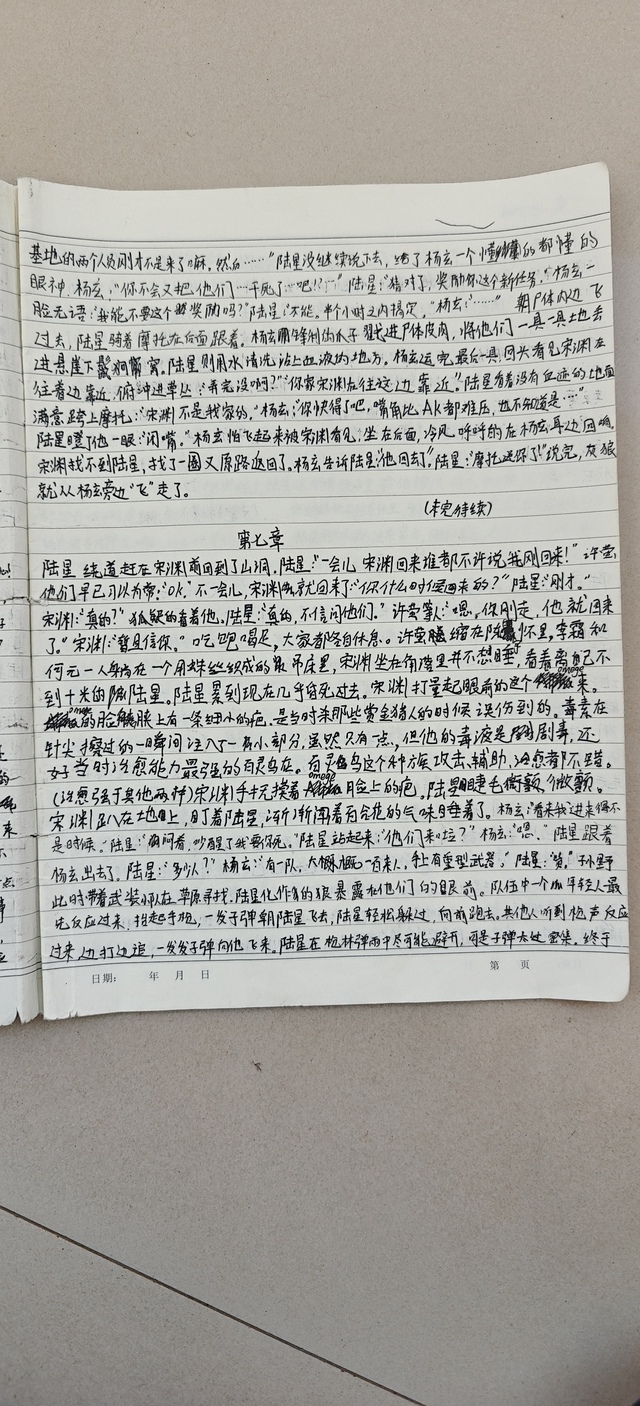 基地的两个人员刚才不是来了嘛，然后……"陆星没继续说下去，给了杨玄一个懂的都懂的
眼神，杨玄："你不会又把他们……干死了……吧!?……"陆星："猜对了，奖励你这个新任务。"杨玄一
脸无语："我能不要这个奖励吗？"陆星："不能。半个小时之内搞定。"杨玄："……"朝尸体内边飞
过去，陆星骑着摩托在后面跟着。杨玄用锋利的爪子戳进尸体皮肉，将他们一具一具地丢
进悬崖下鬣狗窝。陆星则用水清洗沾上血液的地方。杨玄运完最后一具，回头看见宋渊在
往着边靠近，俯冲进草丛："弄完没啊？""你家宋渊在往这边靠近。"陆星看着没有血迹的地面
满意跨上摩托："宋渊不是我家的。"杨玄："你快得了吧，嘴角比AK都难压，也不知道是……"
陆星瞪了他一眼："闭嘴。"杨玄怕飞起来被宋渊看见，坐在后面，冷风呼呼的在杨玄耳边回响。
宋渊找不到陆星，找了一圈又原路返回了。杨玄告诉陆星："他回去了。"陆星："摩托送你了！"说完，灰狼
就从杨玄旁边"飞"走了。
(未完待续)
第七章
陆星绕道赶在宋渊前回到了山洞。陆星："一会儿宋渊回来谁都不许说我刚回来！"许萤
他们早已习以为常："OK。"不一会儿，宋渊就回来了："你什么时候回来的？"陆星："刚才。"
宋渊："真的？"狐疑的看着他。陆星："真的，不信问他们。"许萤等人："嗯，你刚走，他就回来
了。"宋渊："暂且信你。"吃饱喝足，大家都各自休息。许萤缩在陆怀里，李霜和
何元一人躺在一个用蛛丝织成的吊床里，宋渊坐在角落里并不想睡，看着离自己不
到十米的陆星。陆星累到现在几乎昏死过去。宋渊打量起眼前的这个omega来。
omega的脸上有一条细小的疤，是当时杀那些赏金猎人的时候误伤到的。毒素在
针尖擦过的一瞬间注入了一有小部分，虽然只有一点，但他的毒液是剧毒，还
好当时治愈能力最强的百灵鸟在。百灵鸟这个种族攻击、辅助、治愈都不错。
(治愈强于其他两种)宋渊手轻摸着omega脸上的疤，陆星眼睫毛微颤了微颤。
宋渊趴在地上，盯着陆星，渐渐闻着百合花的气味睡着了。杨玄："看来我进来得不
是时候。"陆星："闭着，吵醒了我要你死。"陆星站起来："他们来啦？"杨玄："嗯。"陆星跟着
杨玄出去了。陆星："多少人？"杨玄："有一队，大概一百来人，手上有重型武器。"陆星："赞。"孙野
此时带着武装小队在草原寻找，陆星化作的狼暴露在他们的眼前。队伍中一个年轻人最
先反应过来，抬起手枪，一发子弹朝陆星飞去，陆星轻松躲过，向前跑去。其他人听到枪声反应
过来边打边追，一发发子弹向他飞来。陆星在枪林弹雨中尽可能避开，可是子弹太过密集，终于
日期： 年 月 日 第 页